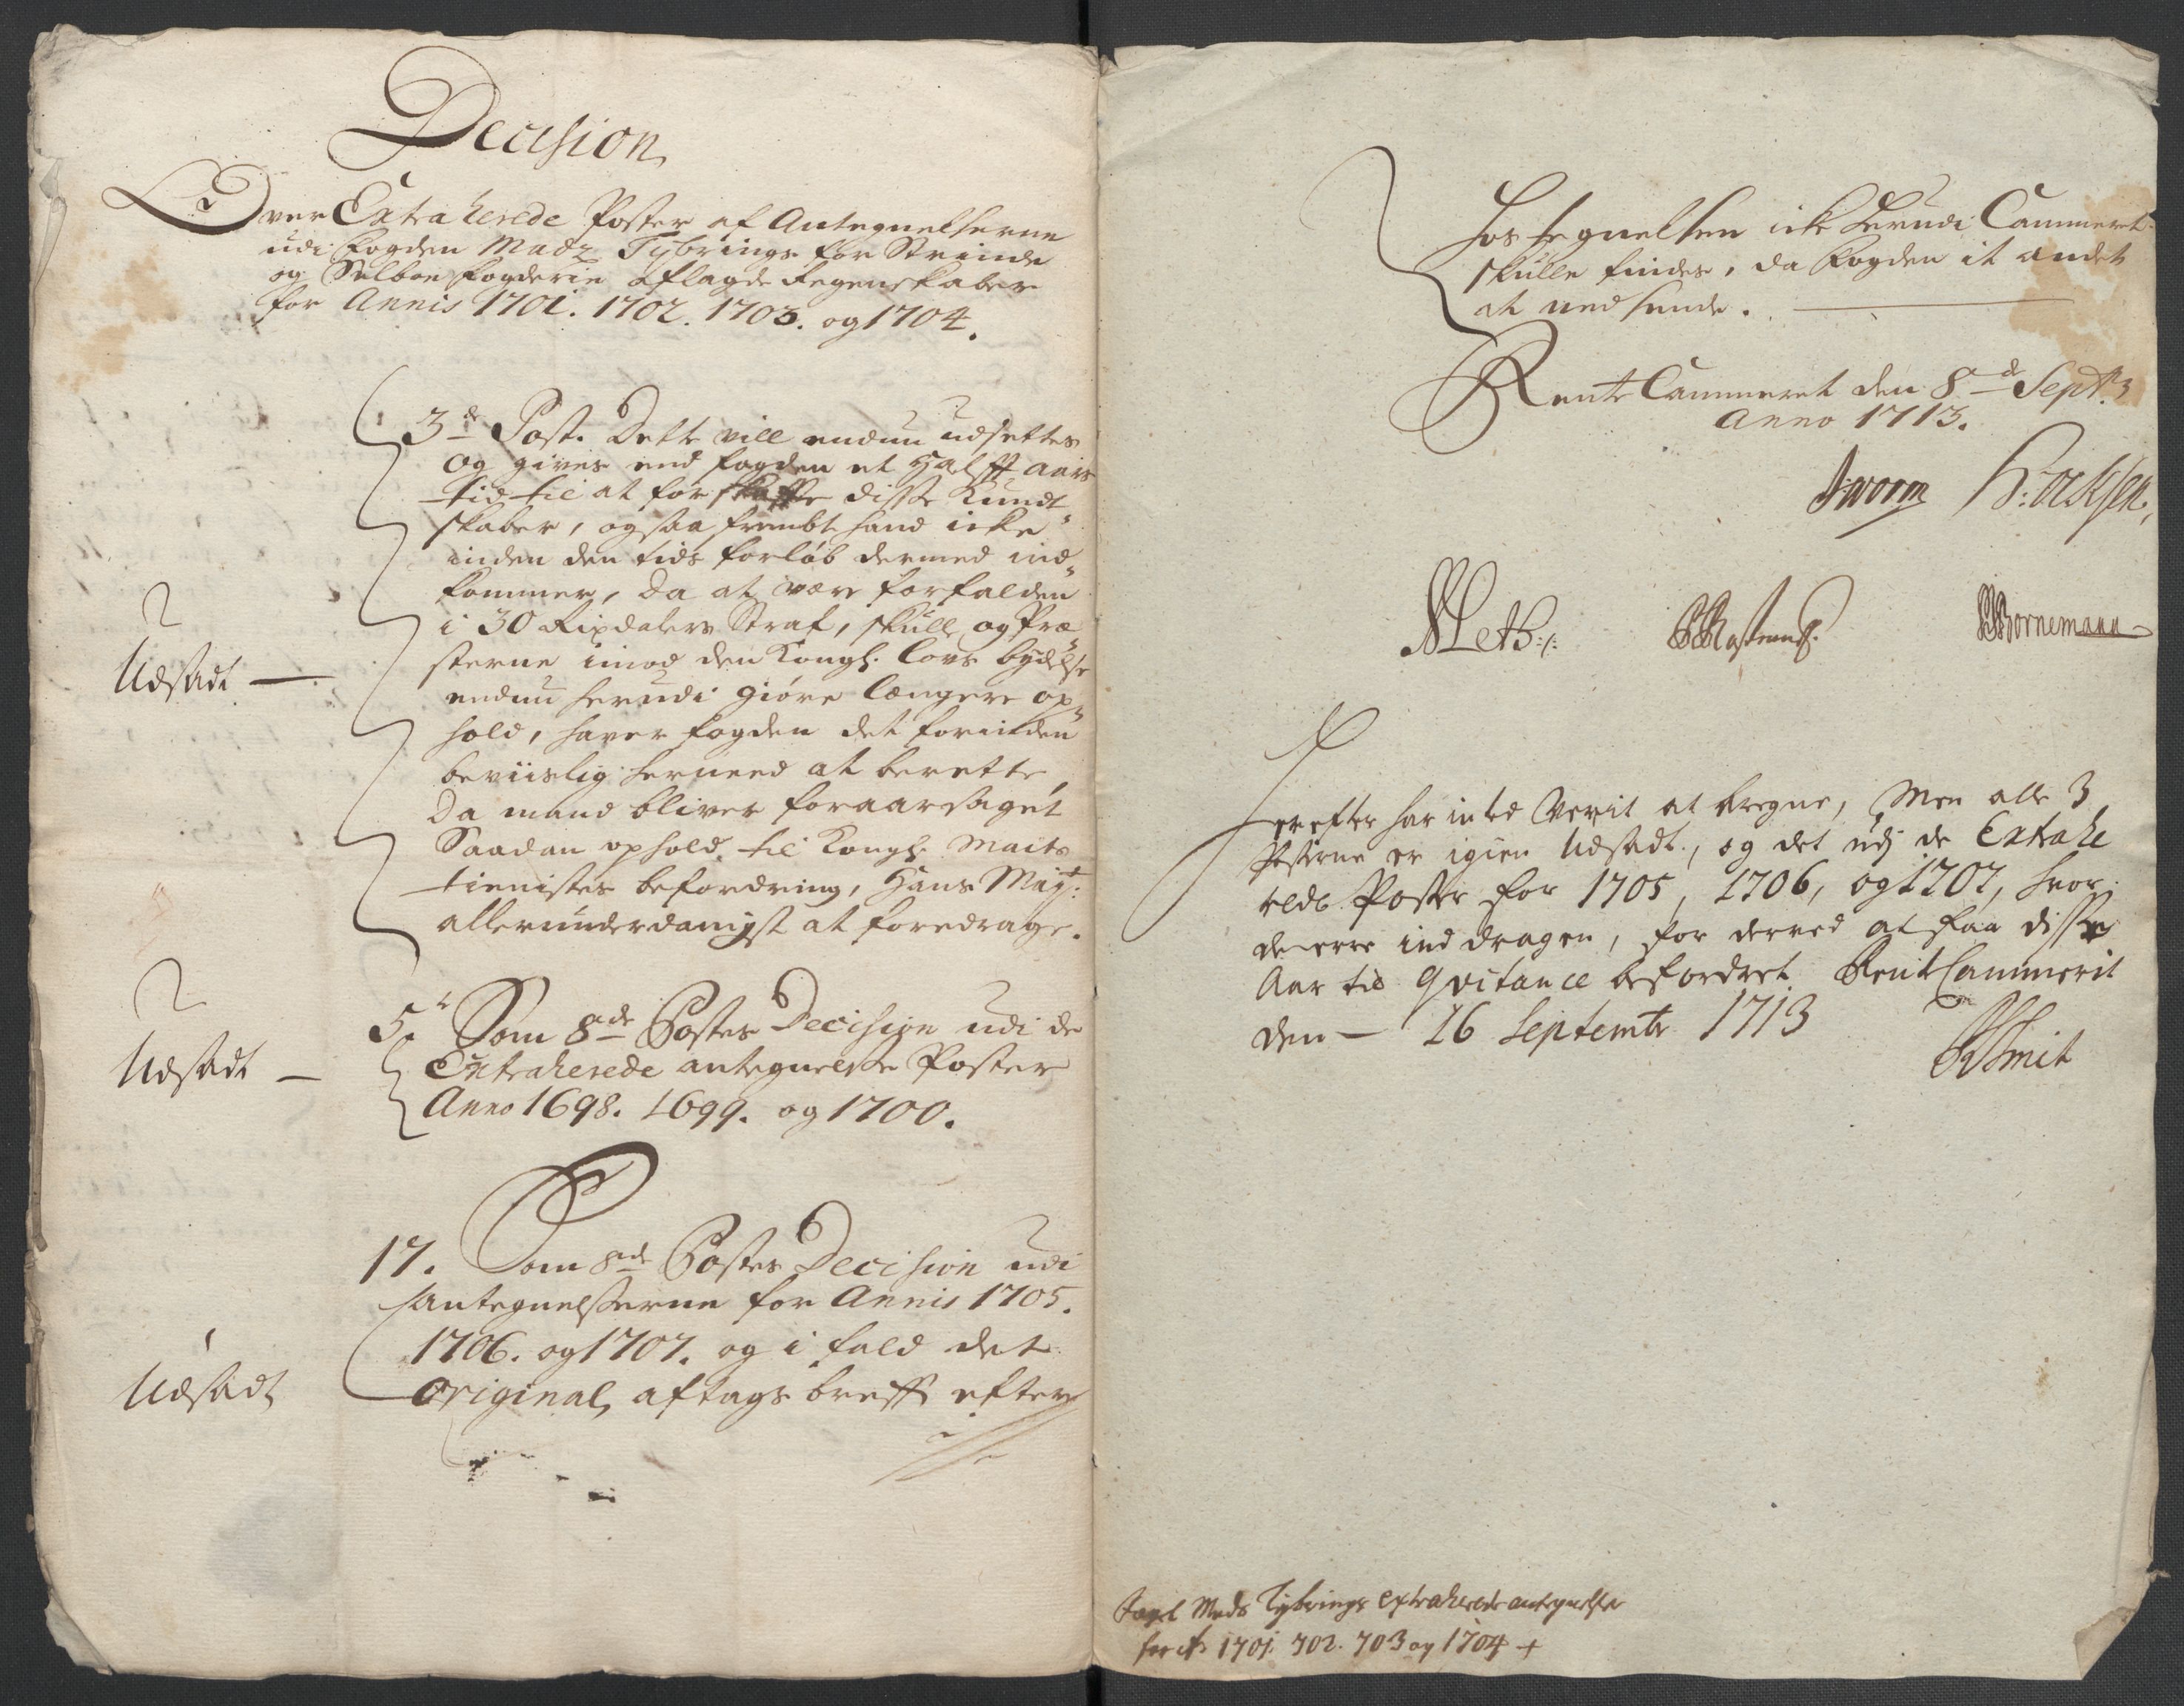 Decision
Over Extraherede Poster af Antegnelserne
udi Fogden Madz Tybrings for Strinde
og Selboe Fogderie aflagde Regenskaber
for Annis 1701. 1702. 1703. og 1704.
3de Post. Dette vill endnu udsettes
og gives end fogden et Halfft aars
tid til at forskaffe disse Kundt-
skaber, og saa frembt hand icke
inden den tids forløb dermed ind-
kommer, da at være forfalden
i 30 Rixdalers Straf, skulle og Præ-
sterne imod den Kongl. Lovs bydelse
endnu herudi giøre længere op-
hold, haver fogden det forinden
beviislig herneed at berette,
Da mand bliver foraarsaget
Saadan ophold til Kongl. Maits
tienistes befordring, Hans Mayt:
allerunderdanigst at foredrage.
Udsadt —
5. Som 8de Postes Decision udi de
Extraherede antegnelse Poster
Anno 1698. 1699. og 1700.
Udsadt —
17. Som 8de Postes Decision udi
Antegnelserne for Annis 1705.
1706. og 1707. og i fald det
Original aftags breff efter
Udsadt
Hostegnelsen icke herudi Cammeret
skulle findes, da Fogden it andet
at nedsende.
Rente Cammeret den 8de Sept.
Anno 1713.
Worm
Meth:
Bornemann
Herefter har inted Verit at beregne, Men alle 3
Posterne er igien Udsadt, og det udj de Extrahe
rede Poster for 1705, 1706, og 1707, hvor
de erre inddragen, for derved at faa disse
Aar til Qvitance befordret. RentCammerit
den — 16 Septembr 1713
Smit
Foget Mads Tybrings extraherede antegnelser
for Ao 1701. 702. 703 og 1704 +